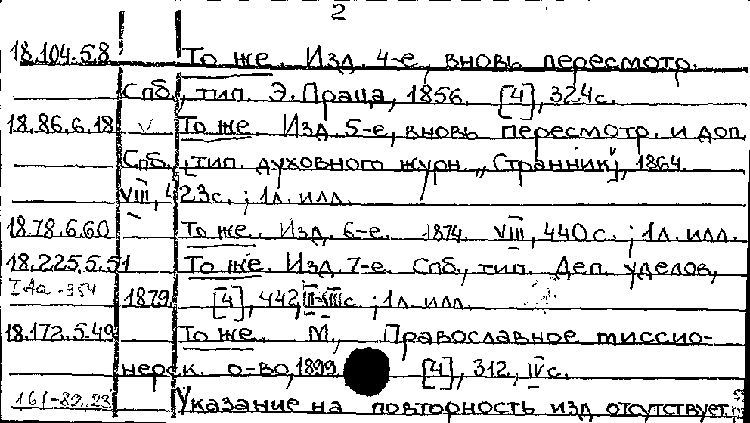 2
18.104.5.8 То же. Изд. 4-е, вновь пересмотр.
Спб., тип. Э. Праца, 1856. [4], 324 с.
18.86.6.18 V То же. Изд. 5-е, вновь пересмотр. и доп.
Спб., [тип. духовного журн. „Странник"], 1864.
VIII, 423с.; 1л. илл.
18.78.6.60 То же. Изд. 6-е. 1874. VIII, 440 с.; 1л. илл.
18.225.5.51 То же. Изд. 7-е. Спб., тип. Деп. уделов,
1879. [4], 442, с.; 1л. илл.
18.172.5.49 То же. М., Православное миссио-
нерск. о-во, 1899. [4], 312, IV с.
Указание на повторность изд. отсутствует.